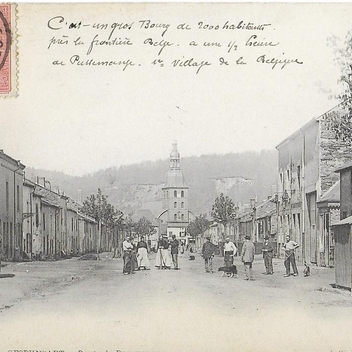 C'est - un gros Bourg de 2000 habitants.
près la frontière Belge. a une 1/2 heure
de Pussemange. 1er Village de la Belgique